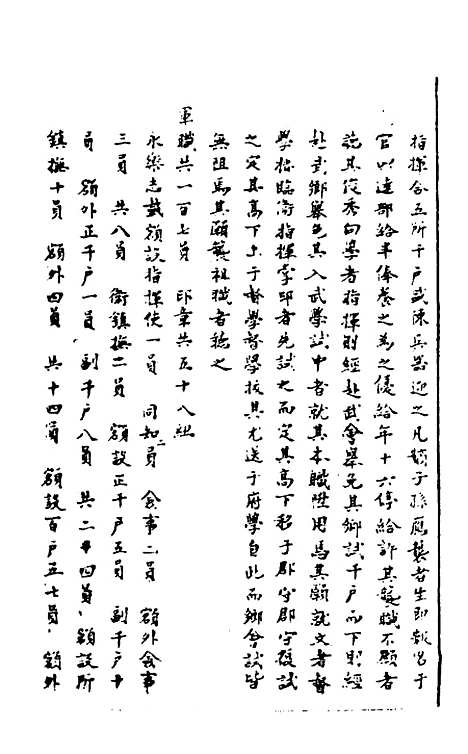 指揮合五所千戶或陳兵器迎之凡嫡子孫應襲者生即報名于
官以達部給半俸養之為之優給年十六停給許其襲職不願者
說其俊秀向學者指揮則經赴武會舉免其鄉試千戶而下則經
赴武鄉舉免其入武學試中者就其本職陞用焉其願就文者督
學按臨衛指揮掌印者先試之而定其高下移于郡守郡守覆試
之定其高下上于督學督學校其尤送于府學自此而鄉會試皆
無阻焉其願襲祖職者聽之
軍職共一百七員 印章共五十八紐
永樂志載額設指揮使一員 同知二員 僉事二員 額外僉事
三員 共八員 衛鎮撫二員 額設正千戶五員 副千戶十
員 額外正千戶一員 副千戶八員 共二十四員 額設所
鎮撫十員 額外四員 共十四員 額設百戶五十員 額外